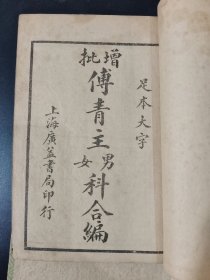 足本大字
增批
傅青主男女科合編
上海廣益書局印行